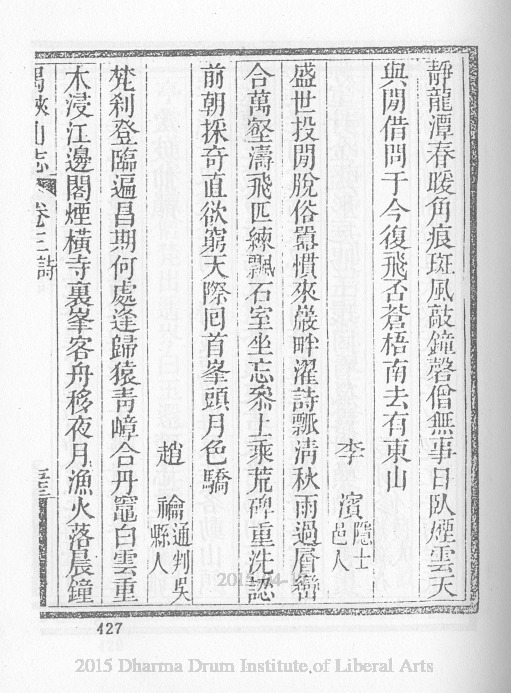 靜龍潭春暖角痕斑風敲鐘磬僧無事日臥煙雲天
與閒借問于今復飛否蒼梧南去有東山
李濱隱士邑人
盛世投閒脫俗囂慣來巖畔濯詩瓢清秋雨過層巒
合萬壑濤飛匹練飄石室坐忘叅上乘荒碑重洗認
前朝探奇直欲窮天際回首峯頭月色驕
趙禴通判吳縣人
梵刹登臨遍昌期何處逢歸猿青嶂合丹竈白雲重
木浸江邊閣煙橫寺裏峯客舟移夜月漁火落晨鐘
峽山志 卷三 詩
427
2015 Dharma Drum Institute of Liberal Arts